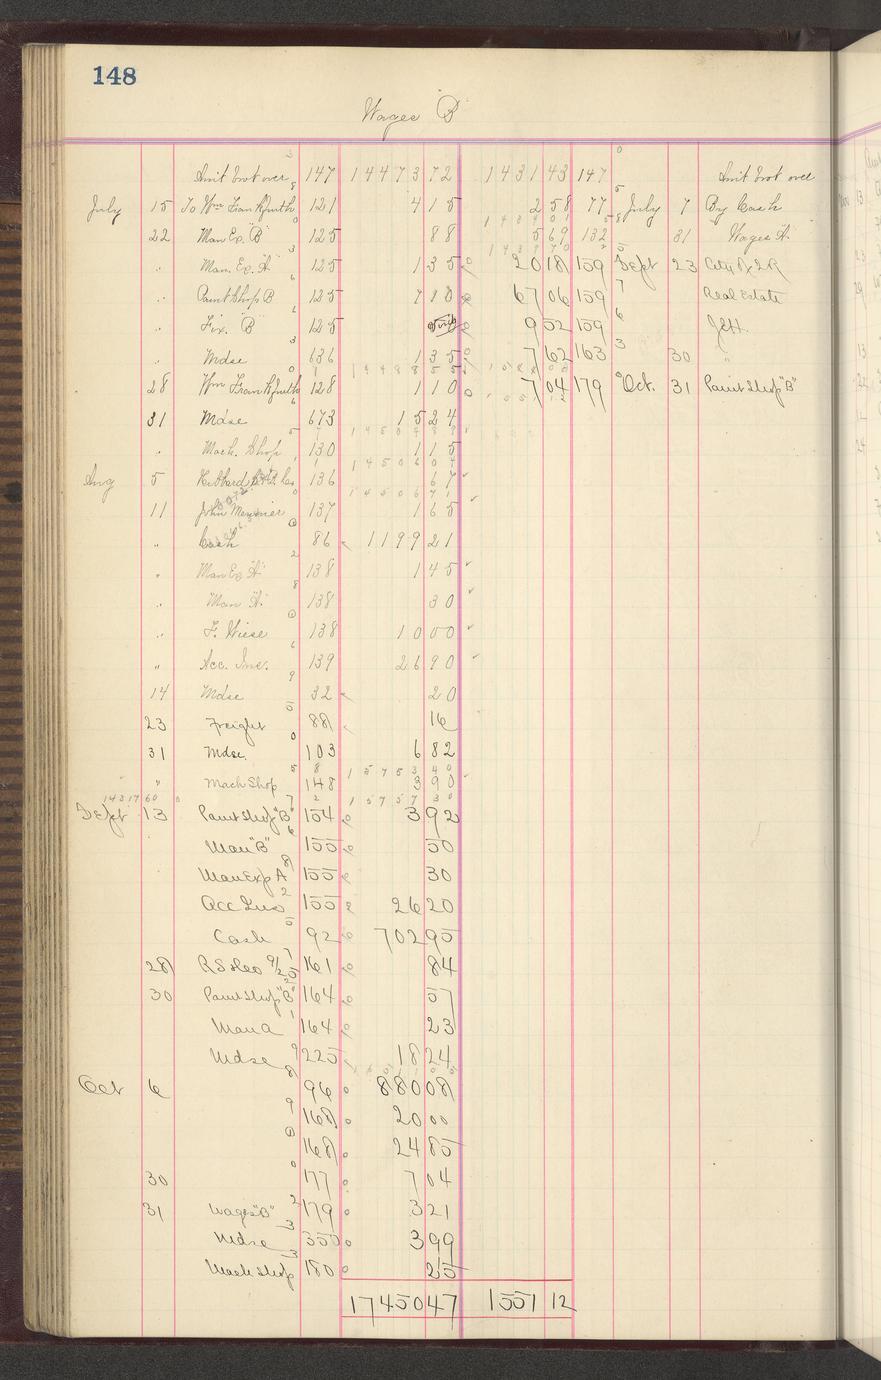 148
Wages "B"
Amt brot over 147 14473 72 1431 43 147 Amt brot over
July 15 To Wm Frankfurth 121 4 15 2 58 77 July 7 By Cash
22 Man Ex. "B" 125 88 5 69 132 31 Wages A.
" Man. Ex. "A" 125 1 35 20 18 159 Sept 23
" Paint Shop B 125 7 10 67 06 159 Real Estate
" Fix. "B" 125 9 52 159
" Mdse 636 1 35 7 62 163 30 "
28 Wm Frankfurth 128 1 10 7 04 179 Oct. 31 Paint Shop "B"
31 Mdse 673 15 24
" Mach. Shop 130 1 15
Aug 5 136 67
11 John 137 1 65
" Cash 86 1199 21
" Man Ex "A" 138 1 45
" Man "A" 138 30
" F. Wiese 138 10 00
" Acc. Ins. 139 26 90
14 Mdse 32 20
23 Freight 88 16
31 Mdse. 103 6 82
" Mach Shop 148 3 90
Sept 13 Paint Shop "B" 154 3 92
Man "B" 155 50
Man Exp A 155 30
Acc Ins 155 26 20
Cash 92 702 95
28 161 84
30 Paint Shop "B" 164 57
Man A 164 23
Mdse 225 18 24
Oct 6 96 880 08
168 20 00
168 24 85
30 177 7 04
31 Wages "B" 179 3 21
Mdse 350 3 99
Mach Shop 180 25
17450 47 1551 12